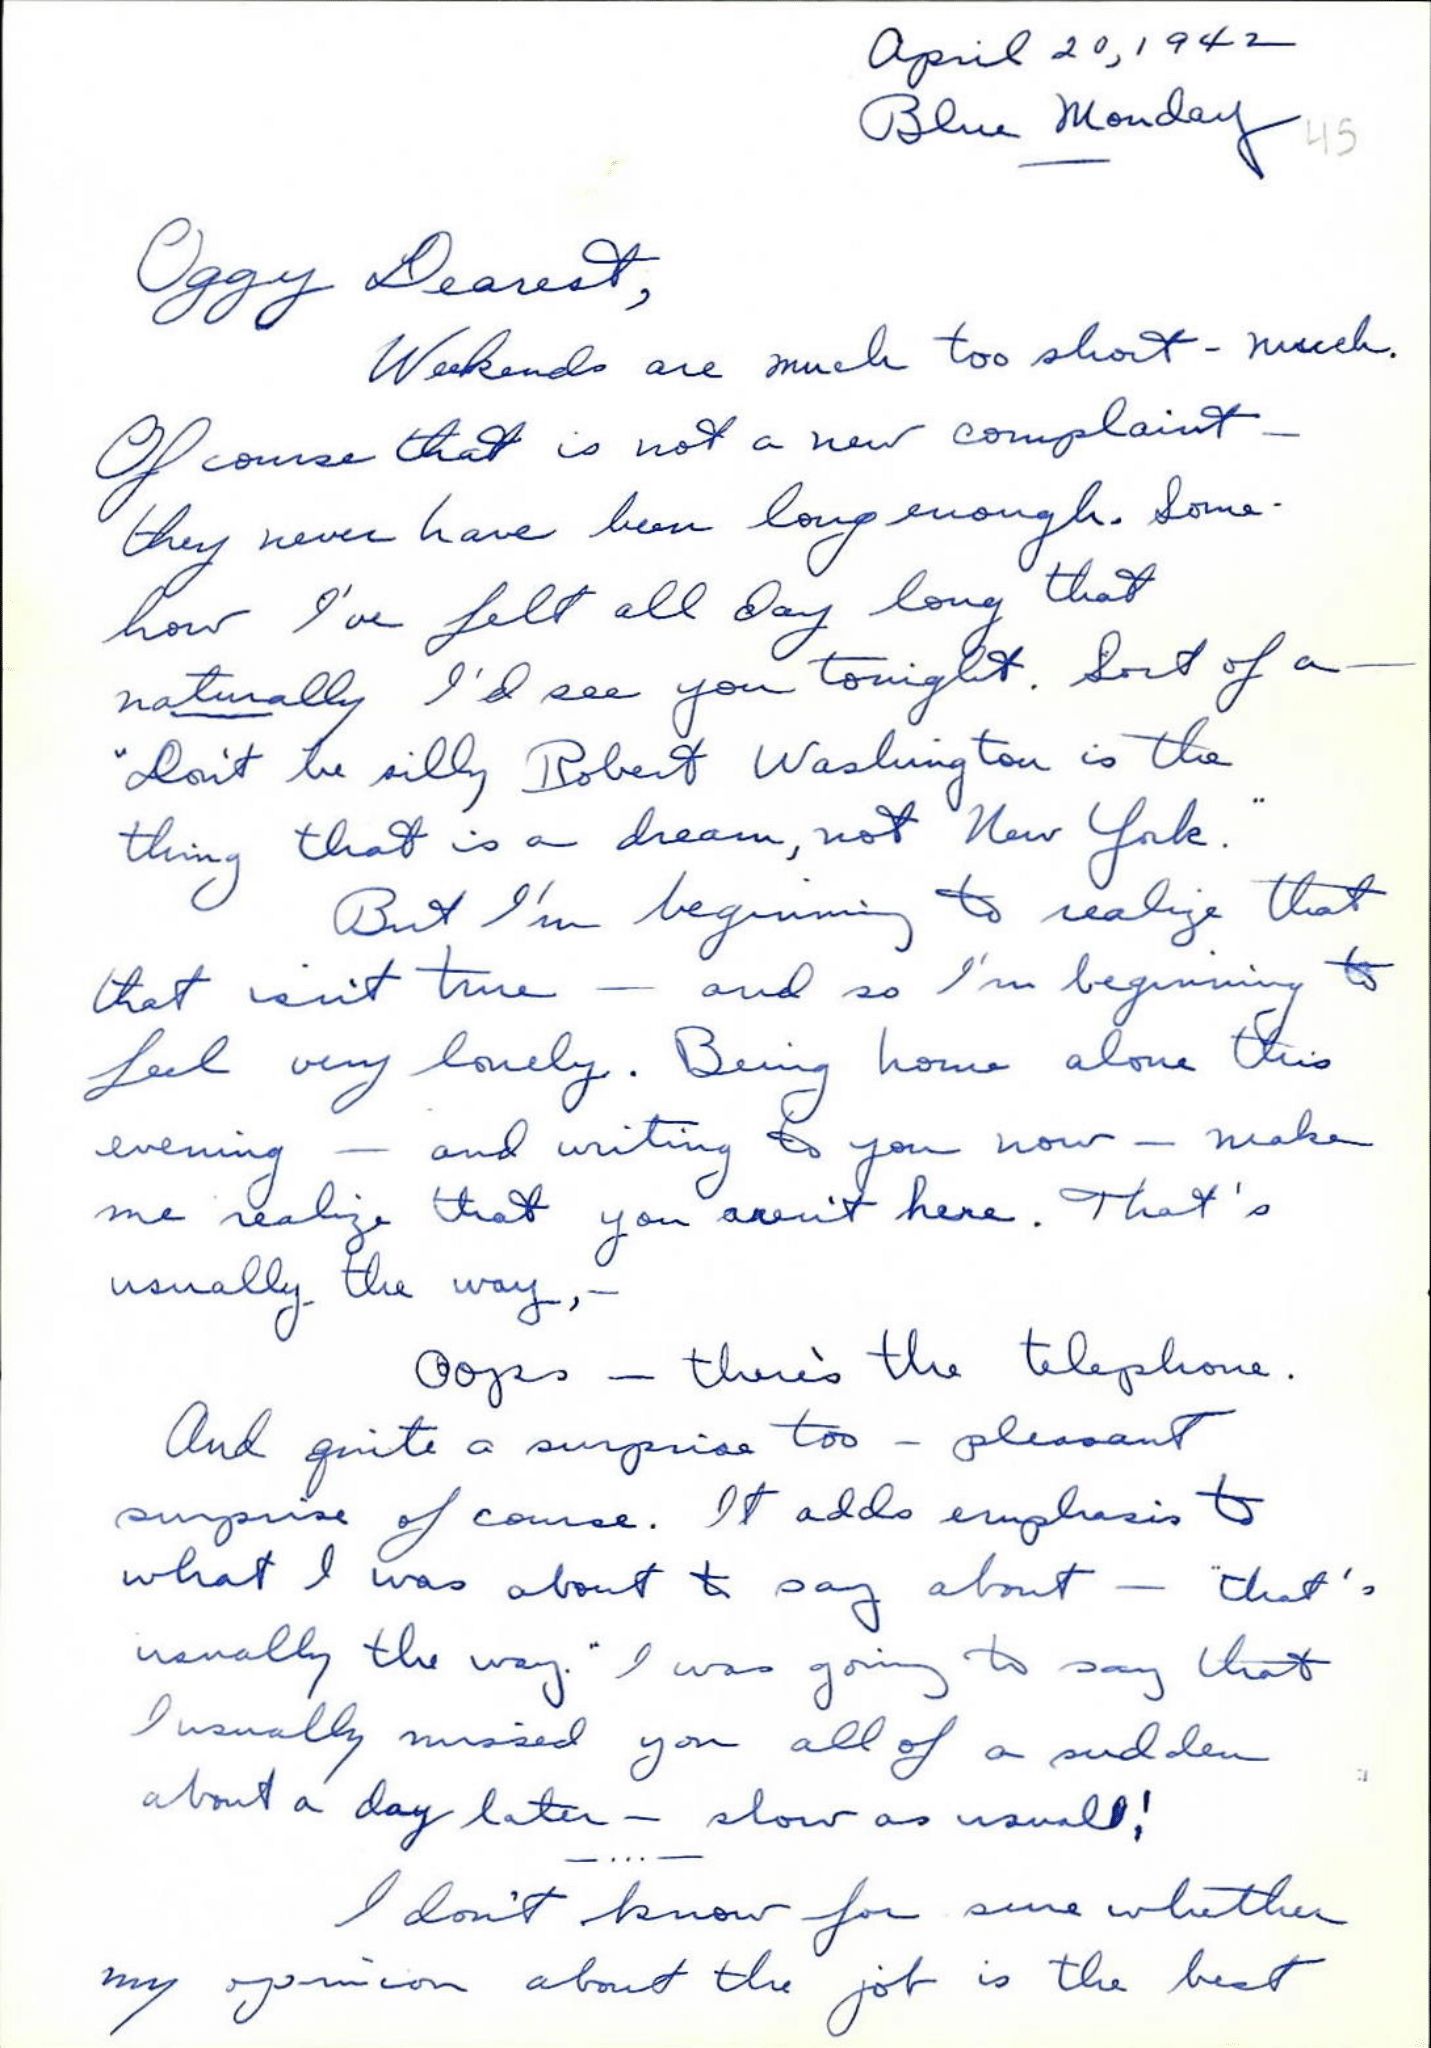 April 20, 1942
Blue Monday
45
Oggy Dearest,
Weekends are much too short - much.
Of course that is not a new complaint -
they never have been long enough. Some-
how I've felt all day long that
naturally I'd see you tonight. Sort of a —
"Don't be silly Robert Washington is the
thing that is a dream, not New York."
But I'm beginning to realize that
that isn't true — and so I'm beginning to
feel very lonely. Being home alone this
evening — and writing to you now — make
me realize that you aren't here. That's
usually the way, -
Oops — there's the telephone.
And quite a surprise too - pleasant
surprise of course. It adds emphasis to
what I was about to say about — "that's
usually the way." I was going to say that
I usually missed you all of a sudden
about a day later — slow as usual!
— ... —
I don't know for sure whether
my opinion about the job is the best